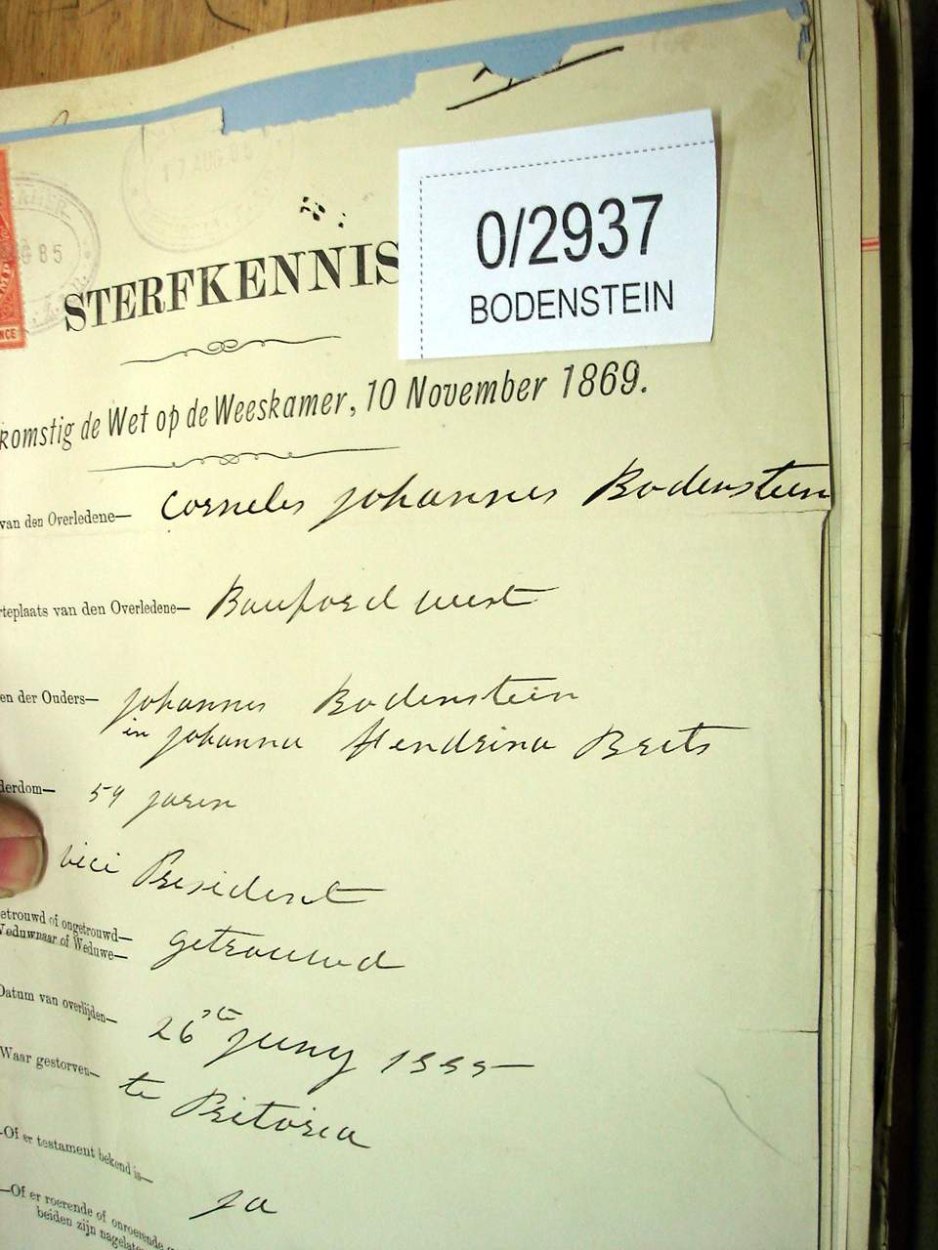 17 AUG 85
85
0/2937
BODENSTEIN
STERFKENNIS
komstig de Wet op de Weeskamer, 10 November 1869.
van den Overledene— Cornelis Johannes Bodenstein
rteplaats van den Overledene— Bauford west
en der Ouders— Johannes Bodenstein
en Johanna Hendrina Brits
derdom— 54 jaren
vice President
etrouwd of ongetrouwd— getrouwd
Weduwnaar of Weduwe—
Datum van overlijden— 26ste Juny 1885
Waar gestorven— te Pritoria
—Of er testament bekend is— ja
—Of er roerende of onroerende
beiden zijn nagelaten